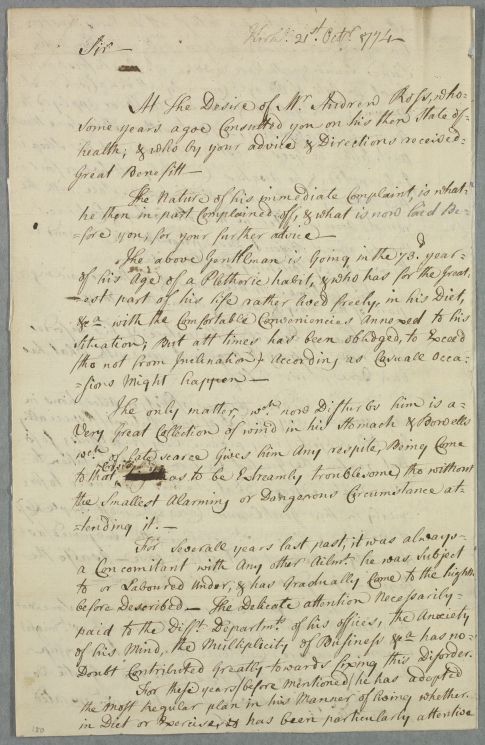 21st. Octr. 1774
Sir—
At the Desire of Mr. Andrew Ross, who=
some years agoe Consulted you on his then State of=
health; & who by your advice & Directions received=
Great Benefitt—
The Nature of his immediate Complaint, is what=
he then in part Complained off, & what is now laid Be=
=fore you, for your further advice—
The above Gentleman is Going in the 73.d year=
of his Age of a Plethoric habit, & who has for the Great
=est part of his life rather lived freely, in his Diet,
&ca. with the Comfortable Conveniencies Annexed to his
Situation; But att times has been obledged, to Exceed
(tho not from Inclination) According as Casuall Occa=
=sions Might happen—
The only matter, wch. now Disturbs him is a=
Very Great Collection of wind in his Stomach & Bowells
wch. of late scarce Gives him Any respite, Being Come
to that as to be Extreamly troublesome, tho without
the Smallest Alarming or Dangerous Circumstance at=
=tending it.—
For Severall years last past, it was always=
a Concomitant with Any other Ailmt. he was Subject
to or Laboured Under, & has Gradually Come to the highth
before Described— The Delicate attention Necessarily=
paid to the Difft. Departmts. of his offices, the Anxiety
of his Mind, the Multiplicity of Business &ca has no=
Doubt Contributed Greatly towards fixing this Disorder.
For these years (before mentioned) he has adopted
the most Regular plan in his Manner of living whether
in Diet or Exercise, & has been particularly attentive